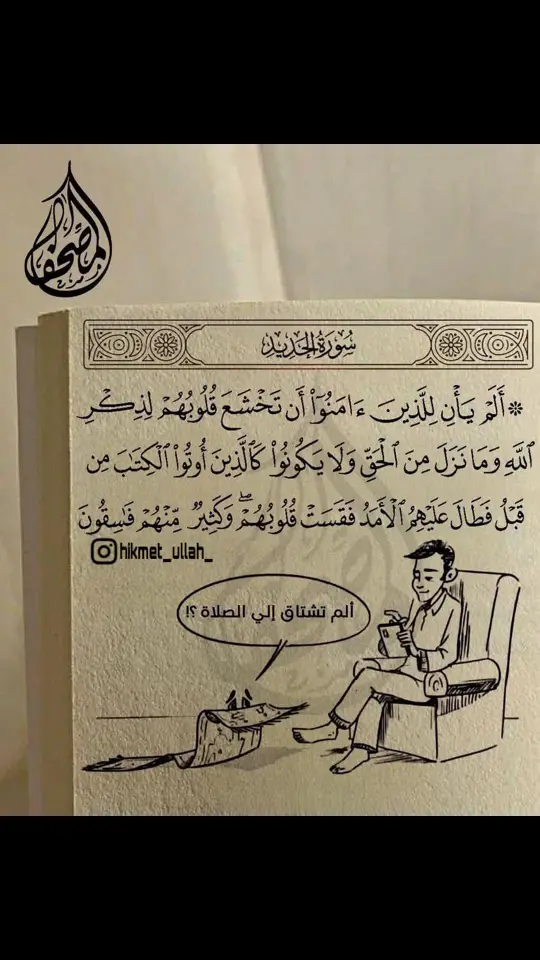 المصحف
سُورَةُ الحَدِيدِ
۞ أَلَمۡ يَأۡنِ لِلَّذِينَ ءَامَنُوٓاْ أَن تَخۡشَعَ قُلُوبُهُمۡ لِذِكۡرِ
ٱللَّهِ وَمَا نَزَلَ مِنَ ٱلۡحَقِّ وَلَا يَكُونُواْ كَٱلَّذِينَ أُوتُواْ ٱلۡكِتَٰبَ مِن
قَبۡلُ فَطَالَ عَلَيۡهِمُ ٱلۡأَمَدُ فَقَسَتۡ قُلُوبُهُمۡۖ وَكَثِيرٞ مِّنۡهُمۡ فَٰسِقُونَ
hikmet_ullah_
ألم تشتاق إلي الصلاة ؟!